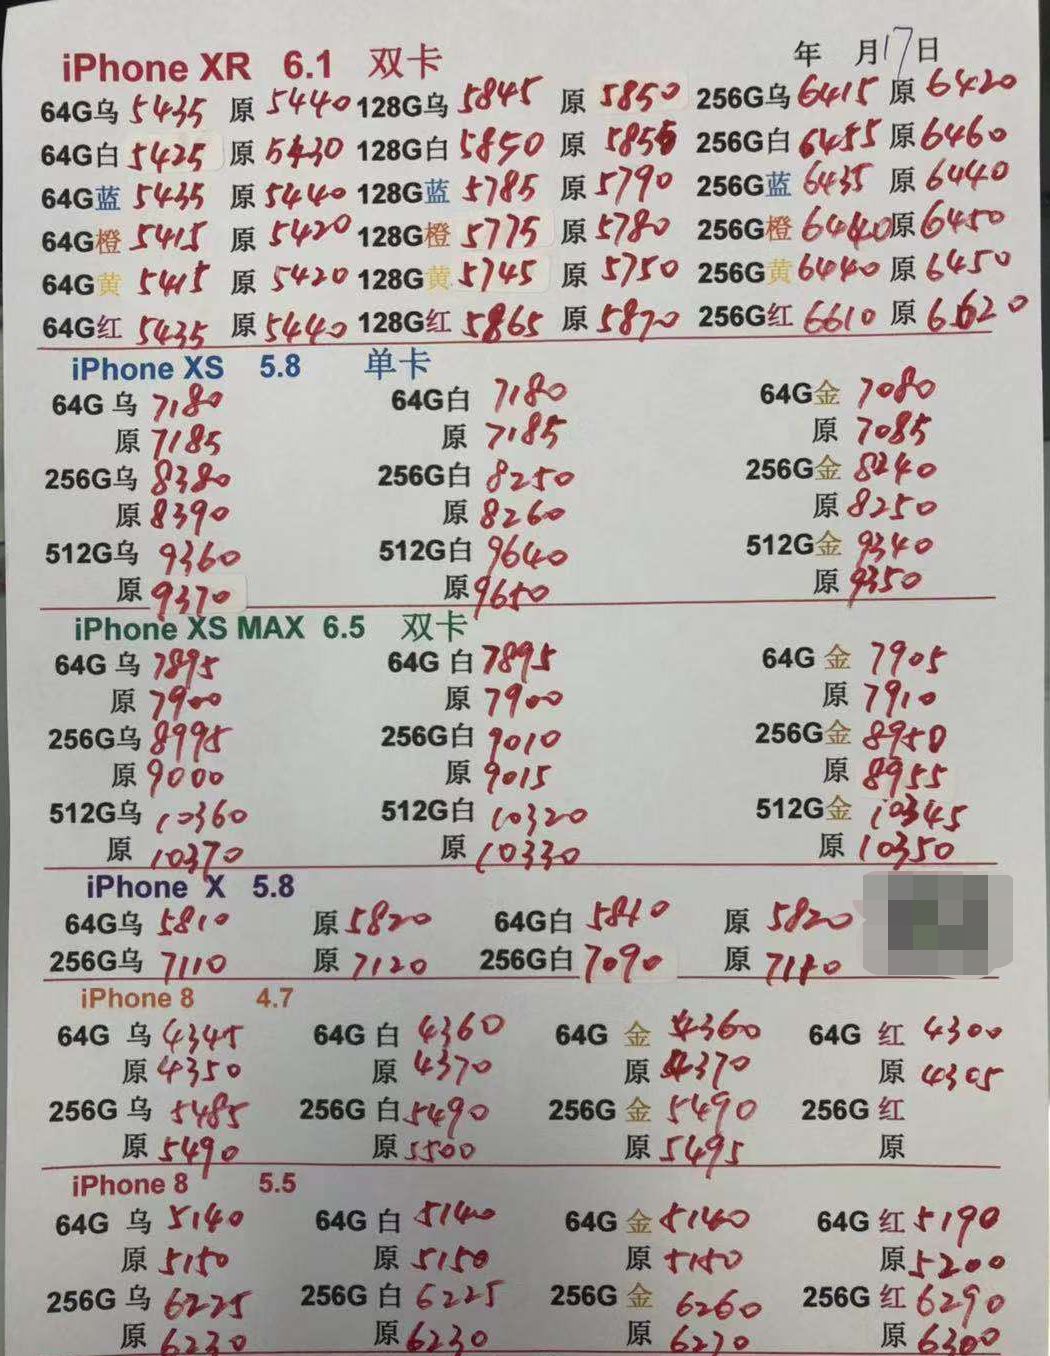 iPhone XR 6.1 双卡 年 月17日
64G乌 5435 原 5440 128G乌 5845 原 5850 256G乌 6415 原 6420
64G白 5425 原 5430 128G白 5850 原 5855 256G白 6455 原 6460
64G蓝 5435 原 5440 128G蓝 5785 原 5790 256G蓝 6435 原 6440
64G橙 5415 原 5420 128G橙 5775 原 5780 256G橙 6440 原 6450
64G黄 5415 原 5420 128G黄 5745 原 5750 256G黄 6440 原 6450
64G红 5435 原 5440 128G红 5865 原 5870 256G红 6610 原 6620
iPhone XS 5.8 单卡
64G 乌 7180 64G白 7180 64G金 7080
原 7185 原 7185 原 7085
256G乌 8380 256G白 8250 256G金 8240
原 8390 原 8260 原 8250
512G乌 9360 512G白 9640 512G金 9340
原 9370 原 9650 原 9350
iPhone XS MAX 6.5 双卡
64G 乌 7895 64G 白 7895 64G 金 7905
原 7900 原 7900 原 7910
256G乌 8995 256G白 9010 256G金 8950
原 9000 原 9015 原 8955
512G乌 10360 512G白 10320 512G金 10345
原 10370 原 10330 原 10350
iPhone X 5.8
64G乌 5810 原 5820 64G白 5810 原 5820
256G乌 7110 原 7120 256G白 7090 原
iPhone 8 4.7
64G 乌 4345 64G 白 4360 64G 金 4360 64G 红 4300
原 4350 原 4370 原 4370 原 4305
256G 乌 5485 256G 白 5490 256G 金 5490 256G 红
原 5490 原 5500 原 5495 原
iPhone 8 5.5
64G 乌 5140 64G 白 5140 64G 金 5140 64G 红 5190
原 5150 原 5150 原 5150 原 5200
256G 乌 6225 256G 白 6225 256G 金 6260 256G 红 6290
原 6230 原 6230 原 6270 原 6300